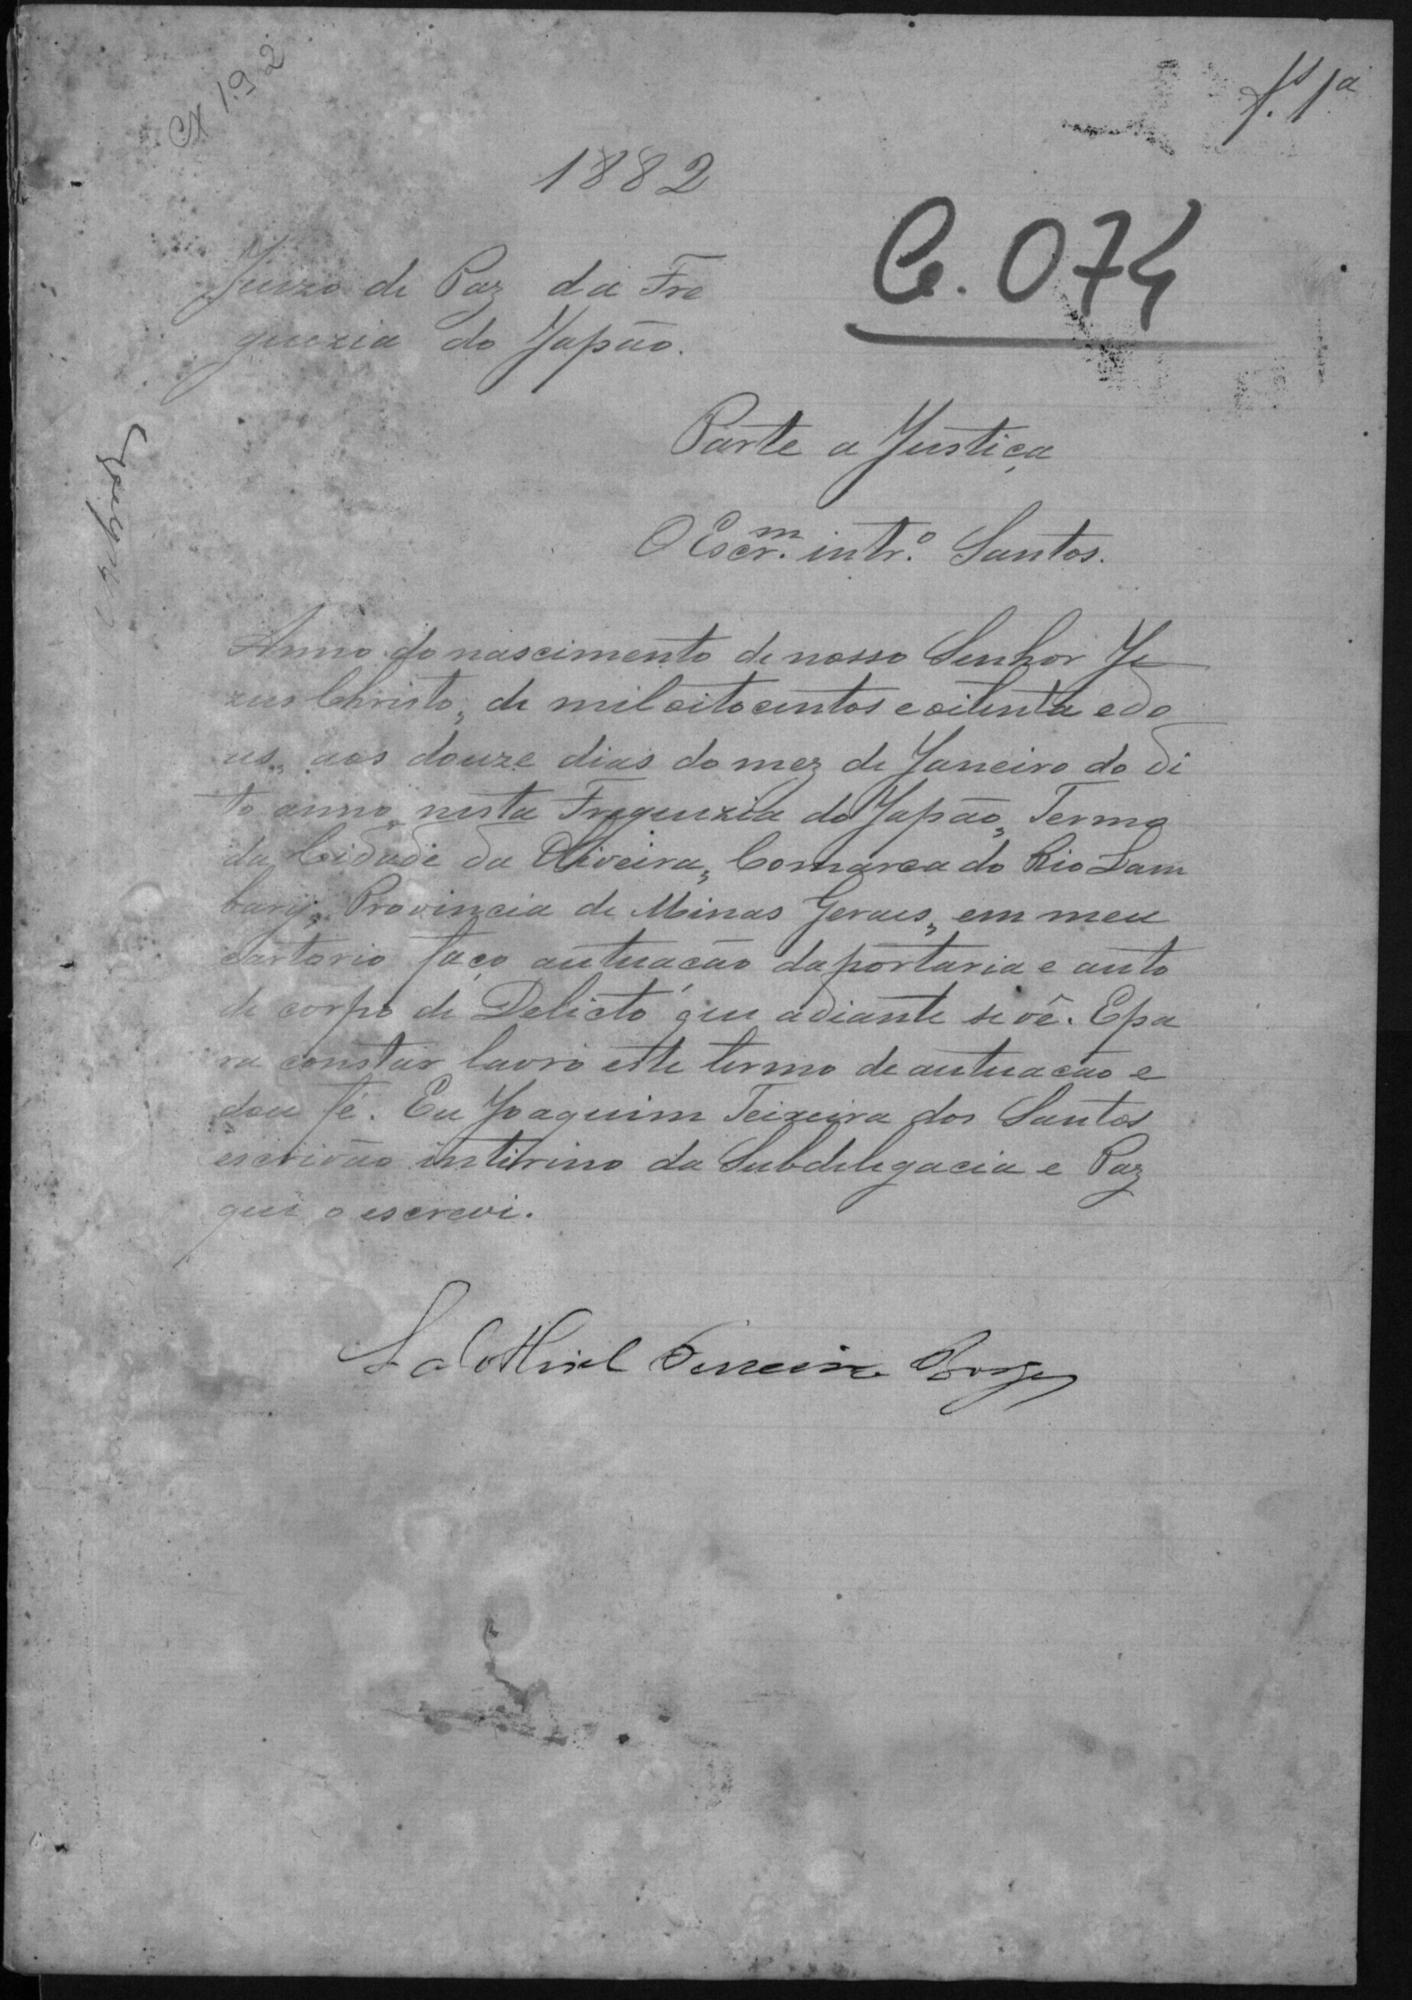 CX 192
fs. 1a
1882
C. 074
Juizo de Paz da Fre
guezia do Japão.
Parte a Justiça
O Escr.m intr.o Santos.
Anno do nascimento de nosso Senhor Je
zus Christo, de mil oitocentos e oitenta e do
us, aos douze dias do mez de Janeiro do di
to anno, nesta Freguezia do Japão, Termo
da Cidade da Oliveira, Comarca do Rio Lam
bary, Provincia de Minas Geraes, em meu
cartorio faço autuacão da portaria e auto
de corpo de Delicto que adiante se vê. E pa
ra constar lavro este termo de autuacão e
dou fé. Eu Joaquim Teixeira dos Santos
escrivão interino da Subdelegacia e Paz
que o escrevi.
Salathiel Ferreira Borges